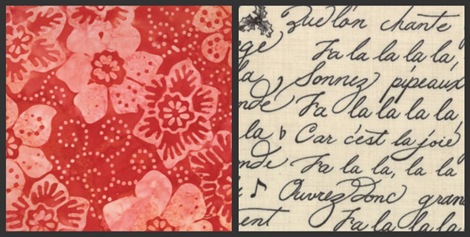 Que l'on chante
ge Fa la la la la,
la, Sonnez pipeaux
nde Fa la la la la
la Car c'est la joie
nde Fa la la, la la
Ouvrez Donc gran
ent Fa la la la